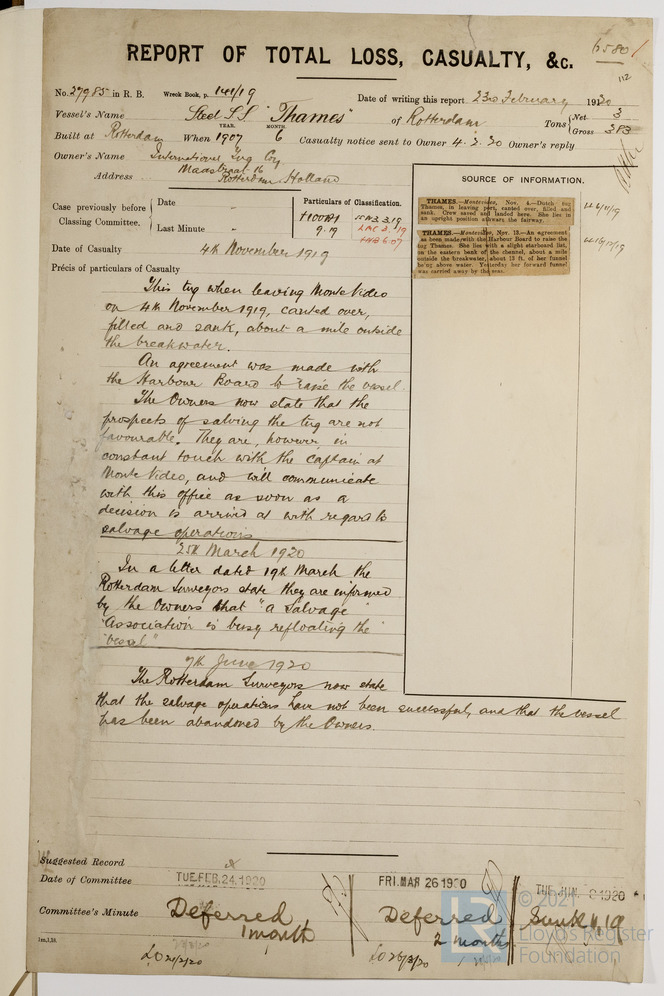 6580
REPORT OF TOTAL LOSS, CASUALTY, &c.
112
No. 27985 in R. B. Wreck Book, p. 141/19
Date of writing this report 23rd February 1920
Vessel's Name Steel S.S. "Thames" of Rotterdam Tons { Net 3
Gross 383
YEAR. MONTH.
Built at Rotterdam When 1907 6 Casualty notice sent to Owner 4.2.20 Owner's reply
Owner's Name International Tug Coy
Address Maastraat 16
Rotterdam Holland
SOURCE OF INFORMATION.
Case previously before Classing Committee. { Date -
Last Minute -
Particulars of Classification.
+100A1
9.19
LMC 3.19
Date of Casualty 4th November 1919
THAMES.—Montevideo, Nov. 4.—Dutch tug
Thames, in leaving port, canted over, filled and
sank. Crew saved and landed here. She lies in
an upright position athwart the fairway.
LL 6/11/19
THAMES.—Montevideo, Nov. 13.—An agreement
has been made with the Harbour Board to raise the
tug Thames. She lies with a slight starboard list,
on the eastern bank of the channel, about a mile
outside the breakwater, about 13 ft. of her funnel
being above water. Yesterday her forward funnel
was carried away by the seas.
Précis of particulars of Casualty
This tug when leaving Monte Video
on 4th November 1919, canted over,
filled and sank, about a mile outside
the breakwater.
An agreement was made with
the Harbour Board to raise the vessel.
The Owners now state that the
prospects of salving the tug are not
favourable. They are, however, in
constant touch with the captain at
Monte Video, and will communicate
with this office as soon as a
decision is arrived at with regard to
salvage operations.
25th March 1920
In a letter dated 19th March the
Rotterdam Surveyors state they are informed
by the Owners that "a Salvage
"Association is busy refloating the
"vessel"
7th June 1920
The Rotterdam Surveyors now state
that the salvage operations have not been successful, and that the vessel
has been abandoned by the Owners.
Suggested Record
Date of Committee TUE. FEB. 24. 1920 FRI. MAR 26 1920 TUE. JUN. 8 1920
Committee's Minute Deferred
1 month
Deferred
2 months.
Sunk 4.11.19
LO 20/2/20 LO 26/3/20
© 2021
LR
Lloyd's Register
Foundation